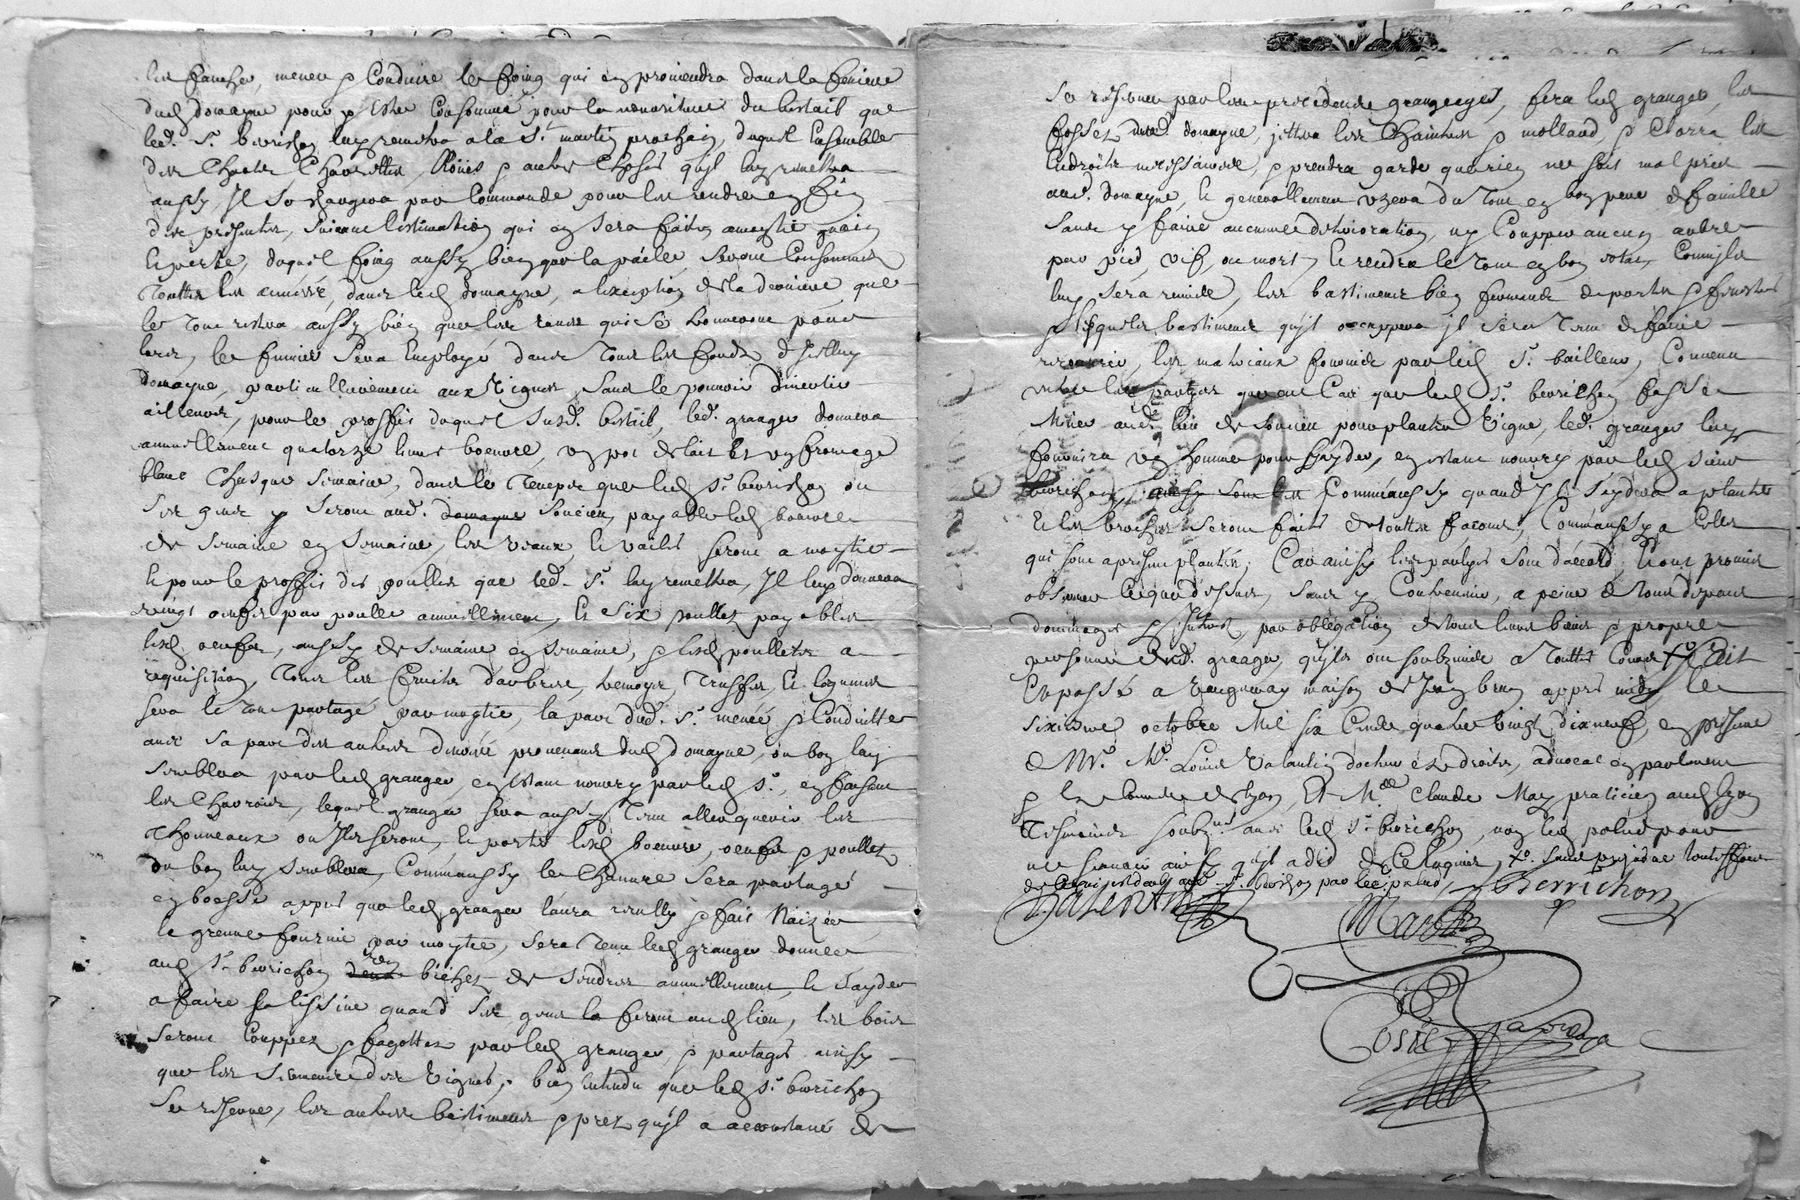 les faucher, mener & conduire le foing qui en proviendra dans la feniere
dud domayne pour y estre consommé pour la nourriture du bestail que
led. Sr. berrichon luy remettra a la St. martin prochain, duquel Ensemble
des Chars Charettes, & autres choses qu'il luy remettra
aussy, Il se chargera par commande pour les rendre en fin
des presentes, suivant l'estimation qui en sera faitte a moytié guain
et perte, duquel foing aussy bien que la paille seront consommés
touttes les années, dans led domayne, a lexception de la derniere que
le tout restera, aussy bien que les qui se trouveront pour
lors, le fumier sera Employé dans tous les fonds d'Icelluy
domayne, particullierement aux vignes, sans le pouvoir divertir
ailleurs, pour le proffit duquel susd. bestail, led. granger donnera
annuellement quatorze livres boeurre, un pot de lait Et un fromage
blanc chasque semaine, dans le temps que led Sr. berrichon ou
ses gens y seront aud. domayne Soucieu, payable led boeurre
de semaine en semaine, les veaux, et seront a moytié
Et pour le proffit des poulles que led. Sr. luy remettra, Il luy donnera
vingt oeufs par poulle annuellement, Et six poullets payables
lesd. oeufs, aussy de semaine en semaine, & lesd poullets a
requisition, tous les fruits d'arbres, truffes, Et legumes
sera le tout partagé par moytié, la part dud. Sr. menée & conduitte
avec sa part des autres denrées provenant dud domayne, ou bon luy
semblera par led granger, en estant nourry par led Sr., en faisant
les charrois, lequel granger sera aussy tenu aller querir les
thonneaux ou Ils seront, Et porter lesd boeurre, oeufs & poullets
ou bon luy semblera, Comm'aussy le chanvre sera partagé
appres que led granger l'aura & fait Naizer
la grenne fournie par moytié, sera tenu led granger donner
aud Sr. berrichon deux trois bichets de cendres annuellement, et l'ayder
a faire sa lessive quand ses gens la feront aud lieu, les bois
seront couppez & fagottés par led granger & partagés ainsy
que les sarments des vignes, bien entendu que led Sr. berrichon
se reserve, les autres bastiments & prez qu'il a accoustumé de
se reserver par les precedents grangeages, fera led granger, les
fossez dud. domayne, jettera les & mollard, & clorra les
endroits necessaires, & prendra garde que rien ne soit mal pris
aud. domayne, Et generallement uzera du tout en bon pere de famille
sans y faire aucune detterioration, ny coupper aucun arbre
par pied, vif, ou mort, Et rendra le tout en bon estat, comm'il
luy sera remis, les bastiments bien fermants de portes & fenestres
& lesquels bastiments qu'il occuppera il sera tenu de faire
les matteriaux fournis par led Sr. bailleur, Convenu
entre les parties que au cas que led Sr. berrichon fasse
Miner aud. lieu de Soucieu pour planter vigne, led. granger luy
fournira un homme pour l'ayder, en estant nourry par led sieur
berrichon, Comm'aussy quand Il s'aydera a planter
Et les broches seront faits de touttes façons, Comm'aussy a celles
qui sont a present plantées; Car ainsy les parties sont d'accord, Et ont promis
observer ce que dessus, sans y contrevenir, a peine de tous despans
dommages & Interests par obligation de tous leurs biens & propre
personne dud. granger, qu'ils ont soubzmis a touttes Cours xo fait
Et passé a Vaugneray maison de appres midy le
sixiesme octobre Mil six Cents quatre vingt dixneuf, en presence
de Mre. Me. Louis Valantin docteur es droits, advocat en parlement
& es cours de Lyon, Et Me. Claude May praticien aud Lyon
tesmoins soubznés avec led Sr. berrichon, non led palud pour
ne scavoir ainsy qu'il a dit de ce Enquis, xo. sans prejudice touttesfois
de ce qui est deub aud. Sr. berrichon par led palud,
Valentin
Berrichon
May
Coste